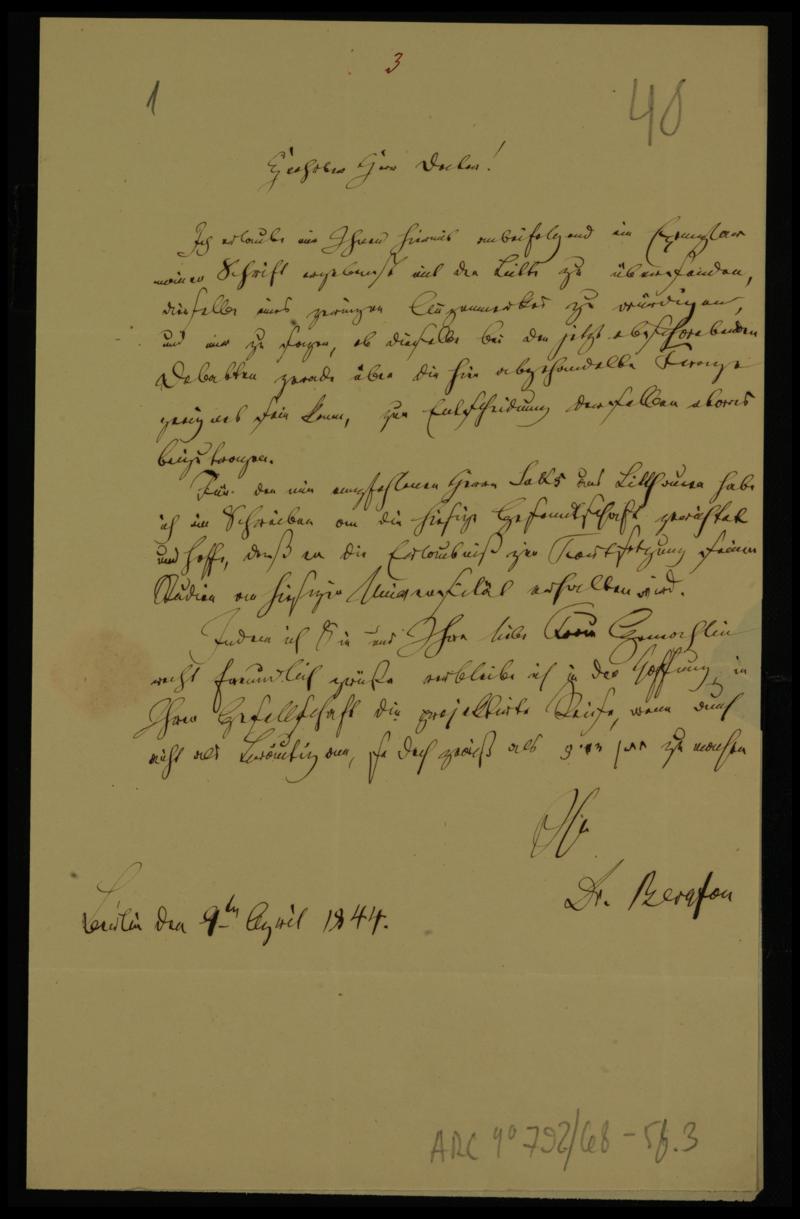 3
1
40
Geehrter Herr Doctor!
Ich erlaube mir Ihnen hiermit anbeifolgend ein Exemplar
meiner Schrift ergebenst mit der Bitte zu übersenden,
dieselbe eines geringen Augenmerkes zu würdigen,
und mir zu sagen, ob dieselbe bei den jetzt obschwebenden
Debatten gerade über die hier abgehandelte Frage
geeignet sein kann, zur Entscheidung derselben etwas
beizutragen.
Für den mir empfohlenen Herrn aus Litthauen habe
ich ein Schreiben an die hiesige Gesandtschaft gerichtet
und hoffe, daß er die Erlaubniß zur Fortsetzung seiner
Studien an hiesiger Universität erhalten wird.
Indem ich Sie und Ihre liebe Frau Gemahlin
recht freundlich grüße verbleibe ich in der Hoffnung, in
Ihrer Gesellschaft die projektirte Reise, wenn auch
nicht als Bräutigam, so doch als zu machen
Ihr
Dr. Bergson
Berlin den 9ten April 1844.
ARC 4° 792/G8 - 56.3